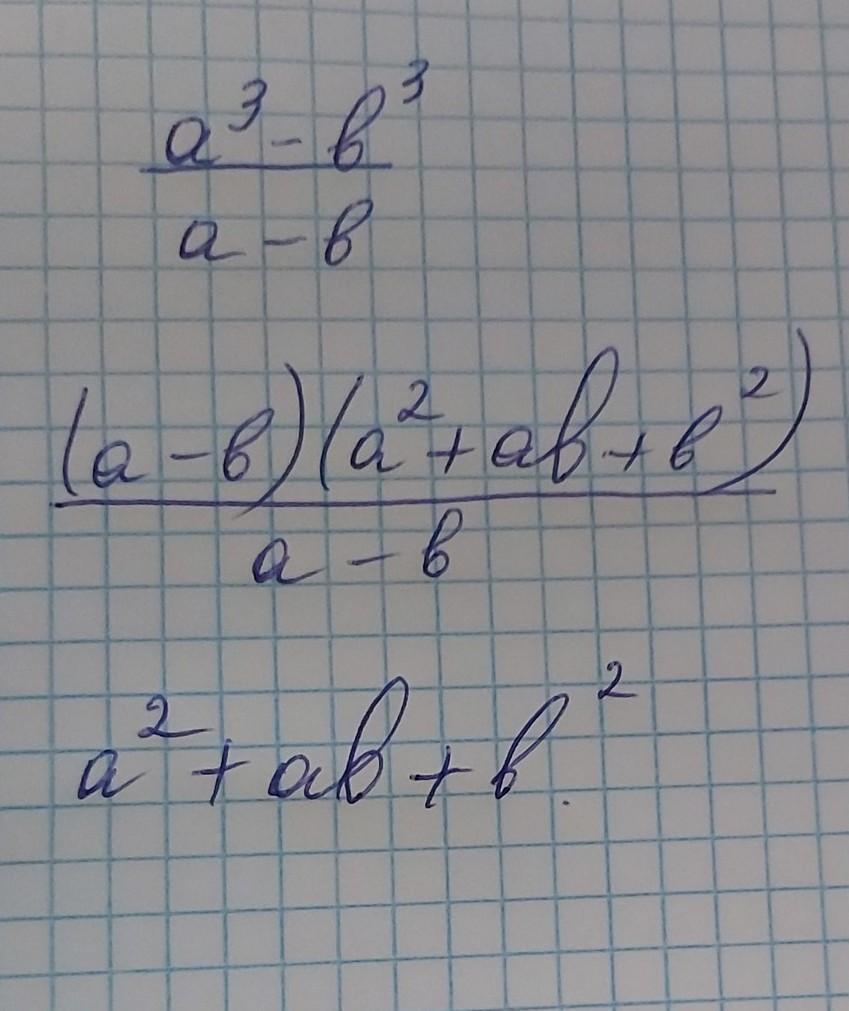 a³ - b³
a - b
(a - b)(a² + ab + b²)
a - b
a² + ab + b².